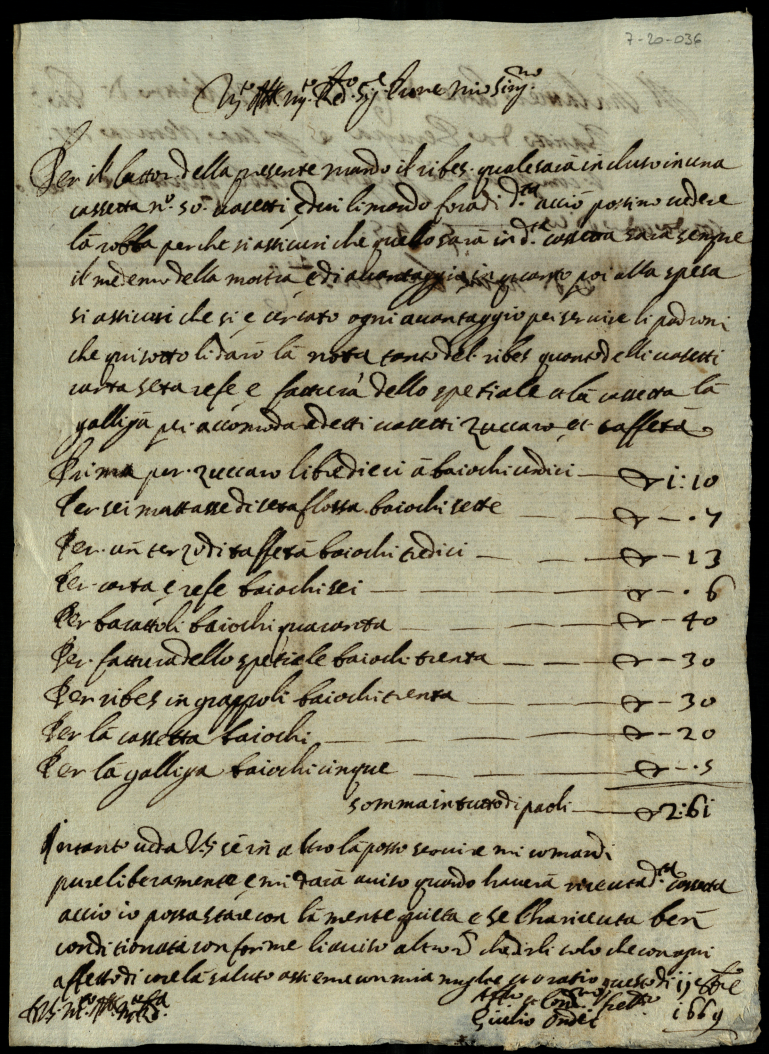 7-20-036
Per il lattor della presente mando il ribes quale sarà incluso in una
cassetta n.º 50 vasetti e dieci li mando fora di d.ta acciò possino vedere
la robba perche si assicuri che quello sarà in d.ta cassetta sarà sempre
il medemo della mostra e di avantaggio in quanto poi alla spesa
si assicuri che si è cercato ogni avantaggio per servire li padroni
che qui sotto li darò la nota tanto del ribes quanto delli vasetti
carta seta refe e fattura dello spetiale et la cassetta la
galliga per accomoda e detti vasetti zuccaro et taffetà
Prima per zuccaro libre dieci a baiochi undici 1:10
Per sei matasse di seta flossa baiochi sette .7
Per un terzo di taffetà baiochi tredici 13
Per carta e refe baiochi sei .6
Per barattoli baiochi quaranta 40
Per fattura dello spetiale baiochi trenta 30
Per ribes in grappoli baiochi trenta 30
Per la cassetta baiochi 20
Per la galliga baiochi cinque .5
somma in tutto di paoli 2:61
Intanto veda VS se in altro la posso servire mi comandi
pure liberamente e mi darà aviso quando haverà riceuta d.ta cassetta
accio io possa stare con la mente quieta e se l'ha riceuta ben
conditionata conforme li aviso altro che dirli solo che con ogni
affetto di core la saluto assieme con mia moglie et oratio questo dì
Giulio
1669